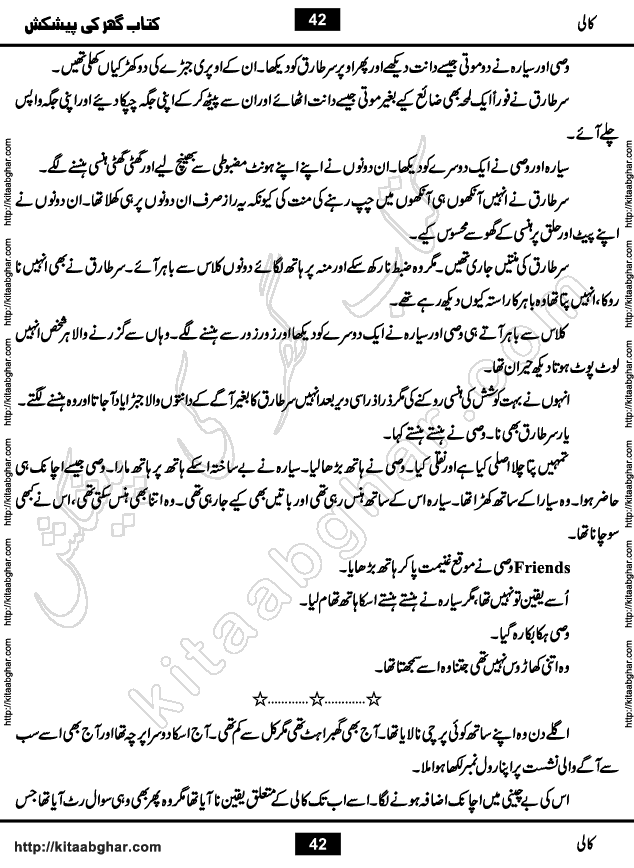 کتاب گھر کی پیشکش
42
کالی
وصی اور سیارہ نے دو موتی جیسے دانت دیکھے اور پھر اوپر سر طارق کو دیکھا۔ ان کے اوپری جبڑے کی دو کھڑکیاں کھلی تھیں۔
سر طارق نے فوراً ایک لمحہ بھی ضائع کیے بغیر موتی جیسے دانت اٹھائے اور ان سے پیٹھ کر کے اپنی جگہ چپکا دیئے اور اپنی جگہ واپس
چلے آئے۔
سیارہ اور وصی نے ایک دوسرے کو دیکھا۔ ان دونوں نے اپنے اپنے ہونٹ مضبوطی سے بھینچ لیے اور گھٹی گھٹی ہنسی ہنسنے لگے۔
سر طارق نے انہیں آنکھوں ہی آنکھوں میں چپ رہنے کی منت کی کیونکہ یہ راز صرف ان دونوں پر ہی کھلا تھا۔ ان دونوں نے
اپنے پیٹ اور حلق پر ہنسی کے گھوسے محسوس کیے۔
سر طارق کی منتیں جاری تھیں۔ مگر وہ ضبط نا رکھ سکے اور منہ پر ہاتھ لگائے دونوں کلاس سے باہر آئے۔ سر طارق نے بھی انہیں نا
روکا، انہیں پتا تھا وہ باہر کا راستہ کیوں دیکھ رہے تھے۔
کلاس سے باہر آتے ہی وصی اور سیارہ نے ایک دوسرے کو دیکھا اور زور زور سے ہنسنے لگے۔ وہاں سے گزرنے والا ہر شخص انہیں
لوٹ پوٹ ہوتا دیکھ حیران تھا۔
انہوں نے بہت کوشش کی ہنسی روکنے کی مگر ذرا ذرا سی دیر بعد انہیں سر طارق کا بغیر آگے کے دانتوں والا جبڑا یاد آ جاتا اور وہ ہنسنے لگتے۔
یار سر طارق بھی نا۔ وصی نے ہنستے ہنستے کہا۔
تمہیں پتا چلا اصلی کیا ہے اور نقلی کیا۔ وصی نے ہاتھ بڑھا لیا۔ سیارہ نے بے ساختہ اسکے ہاتھ پر ہاتھ مارا۔ وصی جیسے اچانک ہی
حاضر ہوا۔ وہ سیارا کے ساتھ کھڑا تھا۔ سیارہ اس کے ساتھ ہنس رہی تھی اور باتیں بھی کیے جا رہی تھی۔ وہ اتنا بھی ہنس سکتی تھی، اس نے کبھی
سوچا نا تھا۔
Friends وصی نے موقع غنیمت پا کر ہاتھ بڑھایا۔
اُسے یقین تو نہیں تھا، مگر سیارہ نے ہنستے ہنستے اسکا ہاتھ تھام لیا۔
وصی ہکا بکا رہ گیا۔
وہ اتنی کھاڑوس نہیں تھی جتنا وہ اسے سمجھتا تھا۔
☆...........☆...........☆
اگلے دن وہ اپنے ساتھ کوئی پرچی نا لایا تھا۔ آج بھی گھبراہٹ تھی مگر کل سے کم تھی۔ آج اسکا دوسرا پرچہ تھا اور آج بھی اسے سب
سے آگے والی نشست پر اپنا رول نمبر لکھا ہوا ملا۔
اس کی بے چینی میں اچانک اضافہ ہونے لگا۔ اسے اب تک کالی کے متعلق یقین نا آیا تھا مگر وہ پھر بھی وہی سوال رٹ آیا تھا جس
http://kitaabghar.com
42
کالی
http://kitaabghar.com http://kitaabghar.com http://kitaabghar.com http://kitaabghar.com http://kitaabghar.com http://kitaabghar.com
http://kitaabghar.com http://kitaabghar.com http://kitaabghar.com http://kitaabghar.com http://kitaabghar.com http://kitaabghar.com
کتاب گھر کی پیشکش
kitaabghar.com